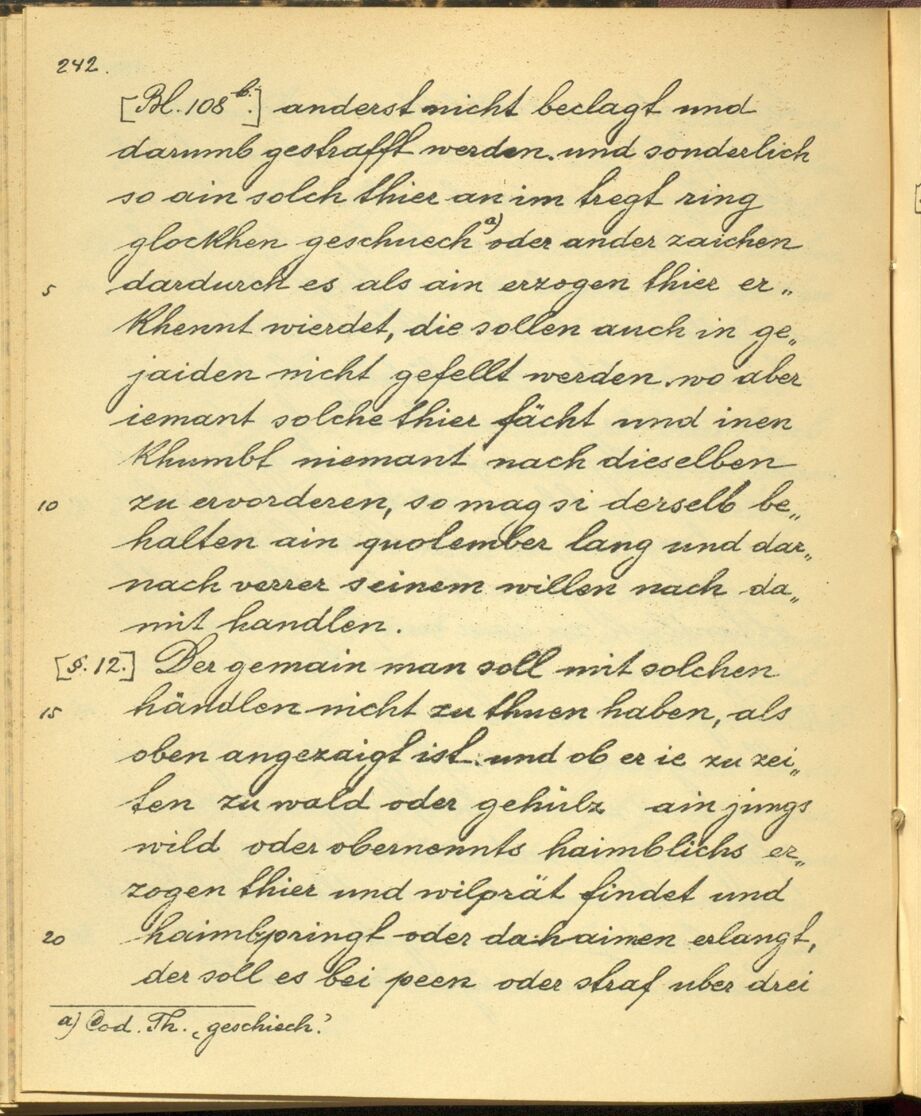 242.
[Bl. 108b.] anderst nicht beclagt und
darumb gestrafft werden. und sonderlich
so ain solch thier an im tregt ring
glockhen geschuech a) oder ander zaichen
5 dardurch es als ain erzogen thier er„
khennt wierdet, die sollen auch in ge„
jaiden nicht gefellt werden. wo aber
iemant solche thier fächt und inen
khumbt niemant nach dieselben
10 zu ervorderen, so mag si derselb be„
halten ain quotember lang und dar„
nach verrer seinem willen nach da„
mit handlen.
[§. 12.] Der gemain man soll mit solchen
15 händlen nicht zu thuen haben, als
oben angezaigt ist. und ob er ie zu zei„
ten zu wald oder gehülz ain jungs
wild oder obernennts haimblichs er„
zogen thier und wilprät findet und
20 haimbpringt oder dahaimen erlangt,
der soll es bei peen oder straf uber drei
a) Cod. Th. „geschiech.“